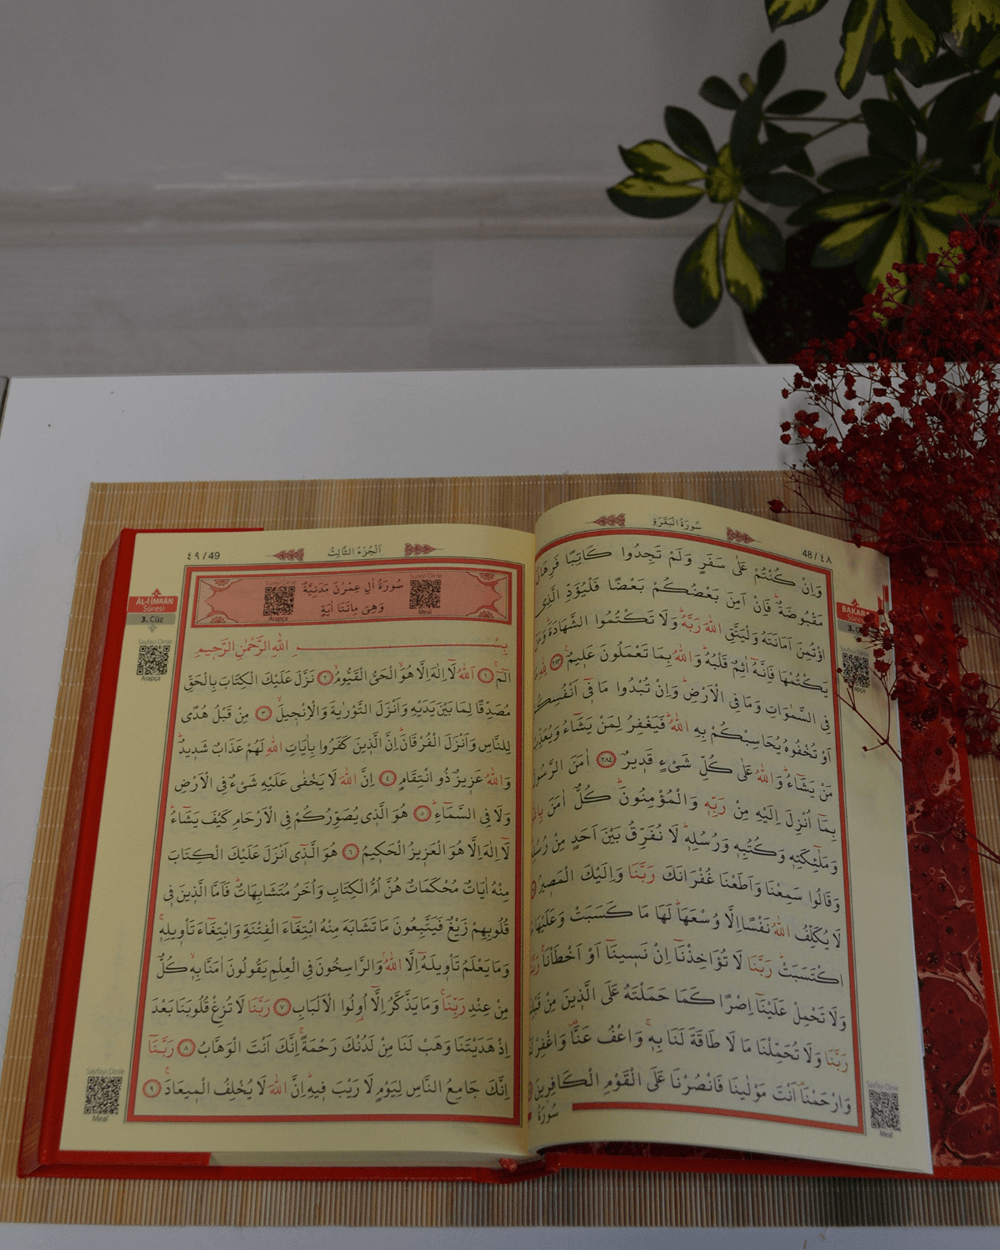 سُورَةُ الْبَقَرَةِ
48 / ٤٨
وَاِنْ كُنْتُمْ عَلٰى سَفَرٍ وَلَمْ تَجِدُوا كَاتِبًا فَرِهَانٌ
مَقْبُوضَةٌ فَاِنْ اَمِنَ بَعْضُكُمْ بَعْضًا فَلْيُؤَدِّ الَّذِي
اؤْتُمِنَ اَمَانَتَهُ وَلْيَتَّقِ اللّٰهَ رَبَّهُ وَلَا تَكْتُمُوا الشَّهَادَةَ وَمَنْ
يَكْتُمْهَا فَاِنَّهُ اٰثِمٌ قَلْبُهُ وَاللّٰهُ بِمَا تَعْمَلُونَ عَلِيمٌ ٢٨٣ لِلّٰهِ مَا
فِي السَّمٰوَاتِ وَمَا فِي الْاَرْضِ وَاِنْ تُبْدُوا مَا فِي اَنْفُسِكُمْ
اَوْ تُخْفُوهُ يُحَاسِبْكُمْ بِهِ اللّٰهُ فَيَغْفِرُ لِمَنْ يَشَاءُ وَيُعَذِّبُ
مَنْ يَشَاءُ وَاللّٰهُ عَلٰى كُلِّ شَيْءٍ قَدِيرٌ ٢٨٤ اٰمَنَ الرَّسُولُ
بِمَا اُنْزِلَ اِلَيْهِ مِنْ رَبِّهِ وَالْمُؤْمِنُونَ كُلٌّ اٰمَنَ بِاللّٰهِ
وَمَلٰئِكَتِهِ وَكُتُبِهِ وَرُسُلِهِ لَا نُفَرِّقُ بَيْنَ اَحَدٍ مِنْ رُسُلِهِ
وَقَالُوا سَمِعْنَا وَاَطَعْنَا غُفْرَانَكَ رَبَّنَا وَاِلَيْكَ الْمَصِيرُ
لَا يُكَلِّفُ اللّٰهُ نَفْسًا اِلَّا وُسْعَهَا لَهَا مَا كَسَبَتْ وَعَلَيْهَا مَا
اكْتَسَبَتْ رَبَّنَا لَا تُؤَاخِذْنَا اِنْ نَسِينَا اَوْ اَخْطَأْنَا رَبَّنَا
وَلَا تَحْمِلْ عَلَيْنَا اِصْرًا كَمَا حَمَلْتَهُ عَلَى الَّذِينَ مِنْ قَبْلِنَا
رَبَّنَا وَلَا تُحَمِّلْنَا مَا لَا طَاقَةَ لَنَا بِهِ وَاعْفُ عَنَّا وَاغْفِرْ لَنَا
وَارْحَمْنَا اَنْتَ مَوْلٰينَا فَانْصُرْنَا عَلَى الْقَوْمِ الْكَافِرِينَ
سُورَةُ
BAKARA
Sayfayı Dinle
Meal
٤٩ / 49
اَلْجُزْءُ الثَّالِثُ
AL-İ İMRAN
Suresi
3. Cüz
Sayfayı Dinle
Arapça
Sureyi Dinle
Arapça
Sureyi Dinle
Meal
سُورَةُ اٰلِ عِمْرٰنَ مَدَنِيَّةٌ
وَهِيَ مِائَتَا اٰيَةٍ
بِسْمِ اللّٰهِ الرَّحْمٰنِ الرَّحِيمِ
الٓمٓ ١ اَللّٰهُ لَا اِلٰهَ اِلَّا هُوَ الْحَيُّ الْقَيُّومُ ٢ نَزَّلَ عَلَيْكَ الْكِتَابَ بِالْحَقِّ
مُصَدِّقًا لِمَا بَيْنَ يَدَيْهِ وَاَنْزَلَ التَّوْرٰيةَ وَالْاِنْجِيلَ ٣ مِنْ قَبْلُ هُدًى
لِلنَّاسِ وَاَنْزَلَ الْفُرْقَانَ اِنَّ الَّذِينَ كَفَرُوا بِاٰيَاتِ اللّٰهِ لَهُمْ عَذَابٌ شَدِيدٌ
وَاللّٰهُ عَزِيزٌ ذُو انْتِقَامٍ ٤ اِنَّ اللّٰهَ لَا يَخْفٰى عَلَيْهِ شَيْءٌ فِي الْاَرْضِ
وَلَا فِي السَّمَاءِ ٥ هُوَ الَّذِي يُصَوِّرُكُمْ فِي الْاَرْحَامِ كَيْفَ يَشَاءُ
لَا اِلٰهَ اِلَّا هُوَ الْعَزِيزُ الْحَكِيمُ ٦ هُوَ الَّذِي اَنْزَلَ عَلَيْكَ الْكِتَابَ
مِنْهُ اٰيَاتٌ مُحْكَمَاتٌ هُنَّ اُمُّ الْكِتَابِ وَاُخَرُ مُتَشَابِهَاتٌ فَاَمَّا الَّذِينَ فِي
قُلُوبِهِمْ زَيْغٌ فَيَتَّبِعُونَ مَا تَشَابَهَ مِنْهُ ابْتِغَاءَ الْفِتْنَةِ وَابْتِغَاءَ تَأْوِيلِهِ
وَمَا يَعْلَمُ تَأْوِيلَهُ اِلَّا اللّٰهُ وَالرَّاسِخُونَ فِي الْعِلْمِ يَقُولُونَ اٰمَنَّا بِهِ كُلٌّ
مِنْ عِنْدِ رَبِّنَا وَمَا يَذَّكَّرُ اِلَّا اُولُوا الْاَلْبَابِ ٧ رَبَّنَا لَا تُزِغْ قُلُوبَنَا بَعْدَ
اِذْ هَدَيْتَنَا وَهَبْ لَنَا مِنْ لَدُنْكَ رَحْمَةً اِنَّكَ اَنْتَ الْوَهَّابُ ٨ رَبَّنَا
اِنَّكَ جَامِعُ النَّاسِ لِيَوْمٍ لَا رَيْبَ فِيهِ اِنَّ اللّٰهَ لَا يُخْلِفُ الْمِيعَادَ ٩
Sayfayı Dinle
Meal